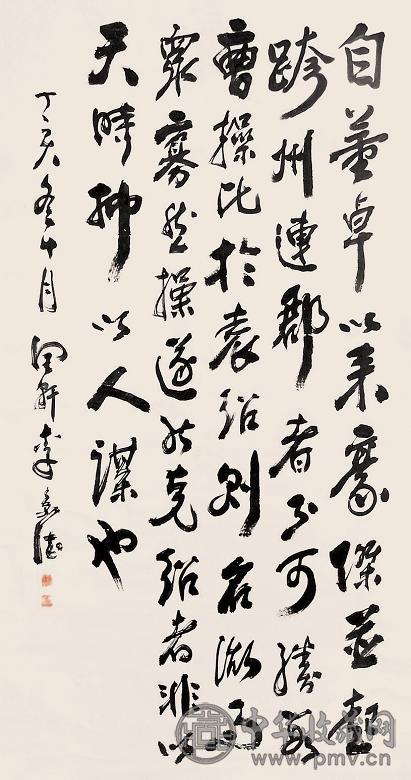 自董卓以来豪傑並起
跨州連郡者不可勝數
曹操比於袁紹則名微而
衆寡然操遂能克紹者非唯
天時抑以人謀也
丁亥冬十月 軒李
中华收藏网
www.pmv.cn